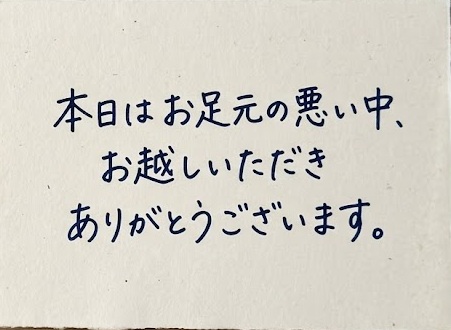 本日はお足元の悪い中、
お越しいただき
ありがとうございます。